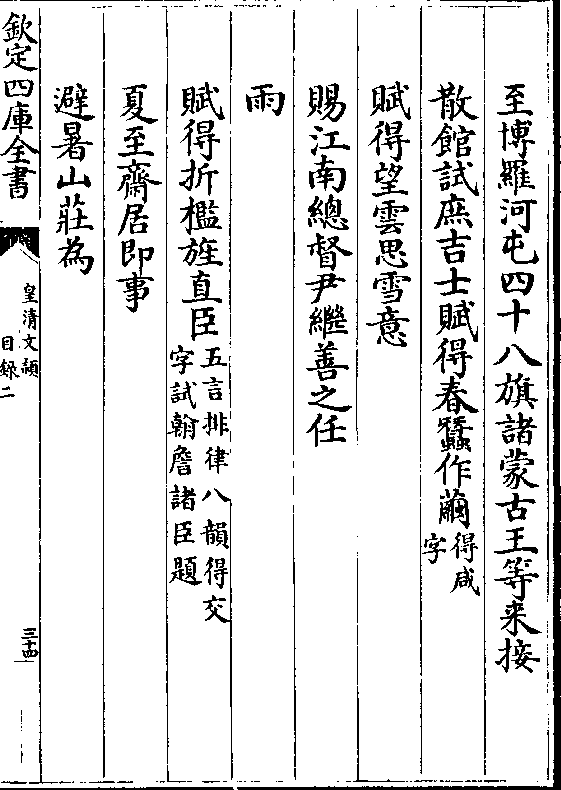 至博羅河屯四十八旗諸蒙古王等来接
散館試庶吉士賦得春蠶作繭得咸
字
賦得望雲思雪意
賜江南總督尹繼善之任
雨
賦得折檻旌直臣五言排律八韻得交
字試翰詹諸臣題
夏至齋居即事
避暑山莊為
欽定四庫全書
皇清文穎
目録二
三十四